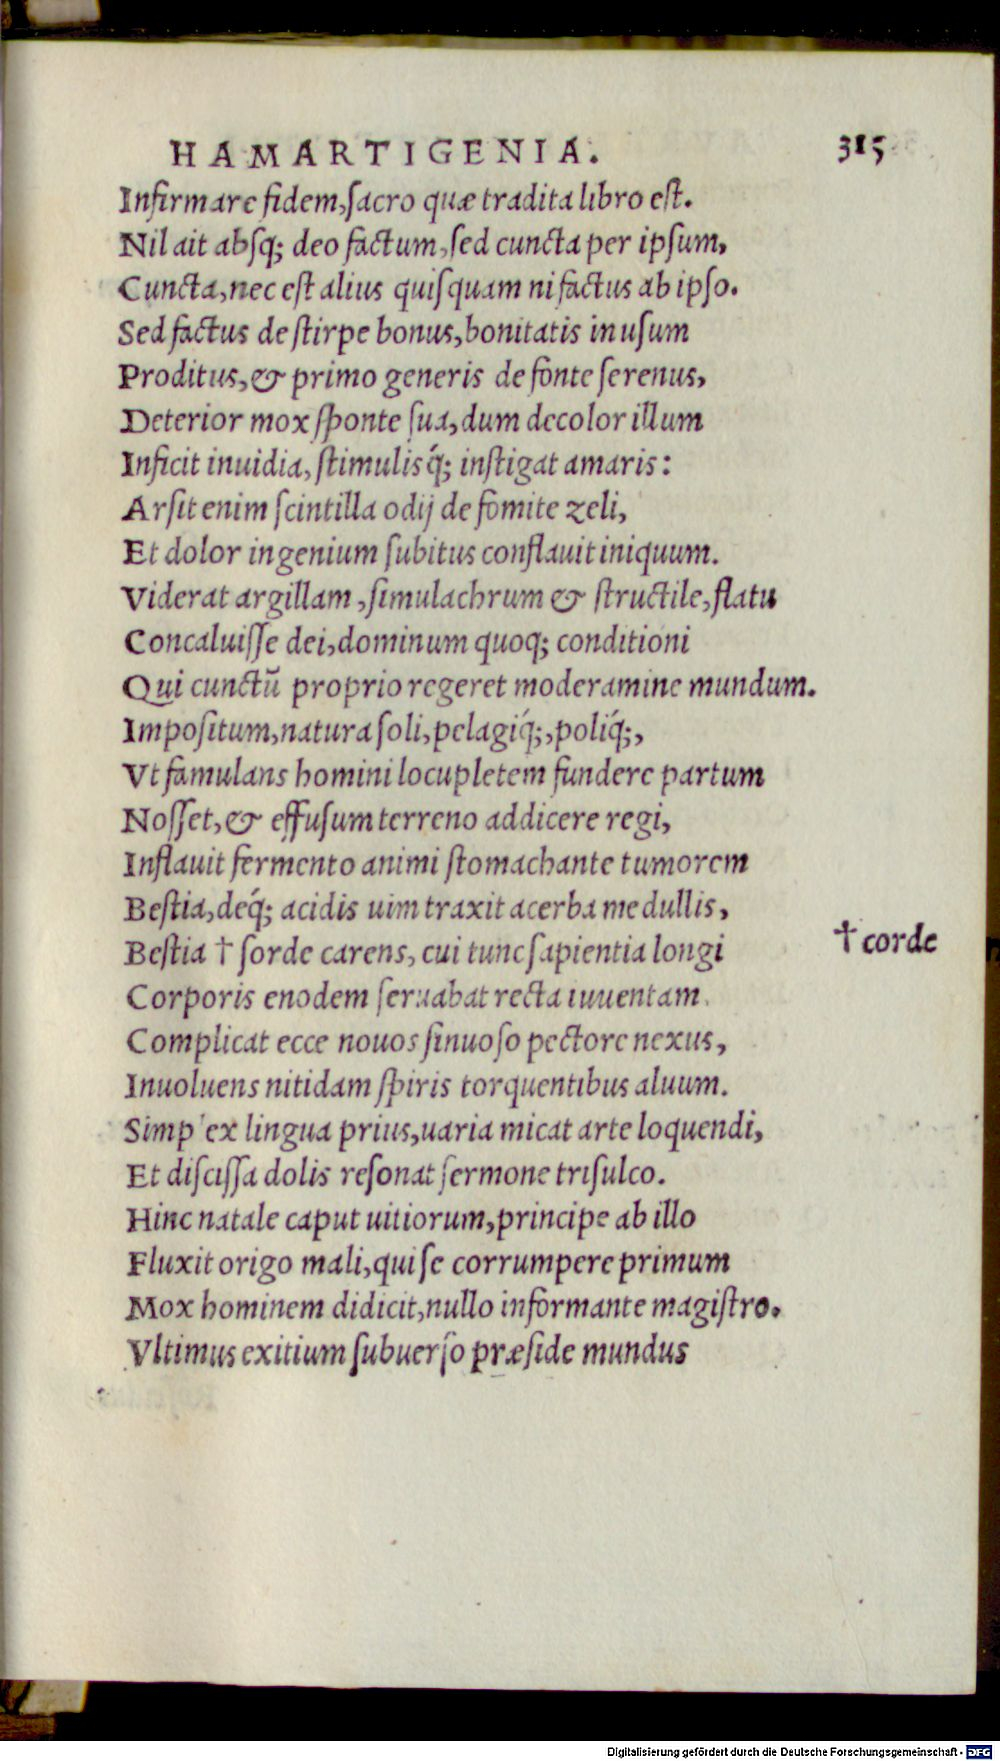 HAMARTIGENIA. 315
Infirmare fidem, sacro quæ tradita libro est.
Nil ait absq; deo factum, sed cuncta per ipsum,
Cuncta, nec est alius quisquam ni factus ab ipso.
Sed factus de stirpe bonus, bonitatis in usum
Proditus, & primo generis de fonte serenus,
Deterior mox sponte sua, dum decolor illum
Inficit inuidia, stimulisq́; instigat amaris:
Arsit enim scintilla odij de fomite zeli,
Et dolor ingenium subitus conflauit iniquum.
Viderat argillam, simulachrum & structile, flatu
Concaluisse dei, dominum quoq; conditioni
Qui cunctū proprio regeret moderamine mundum.
Impositum, natura soli, pelagiq́;, poliq́;,
Vt famulans homini locupletem fundere partum
Nosset, & effusum terreno addicere regi,
Inflauit fermento animi stomachante tumorem
Bestia, deq́; acidis uim traxit acerba medullis,
Bestia † sorde carens, cui tunc sapientia longi
† corde
Corporis enodem seruabat recta iuuentam.
Complicat ecce nouos sinuoso pectore nexus,
Inuoluens nitidam spiris torquentibus aluum.
Simp'ex lingua prius, uaria micat arte loquendi,
Et discissa dolis resonat sermone trisulco.
Hinc natale caput uitiorum, principe ab illo
Fluxit origo mali, qui se corrumpere primum
Mox hominem didicit, nullo informante magistro.
Vltimus exitium subuerso præside mundus
Digitalisierung gefördert durch die Deutsche Forschungsgemeinschaft - DFG